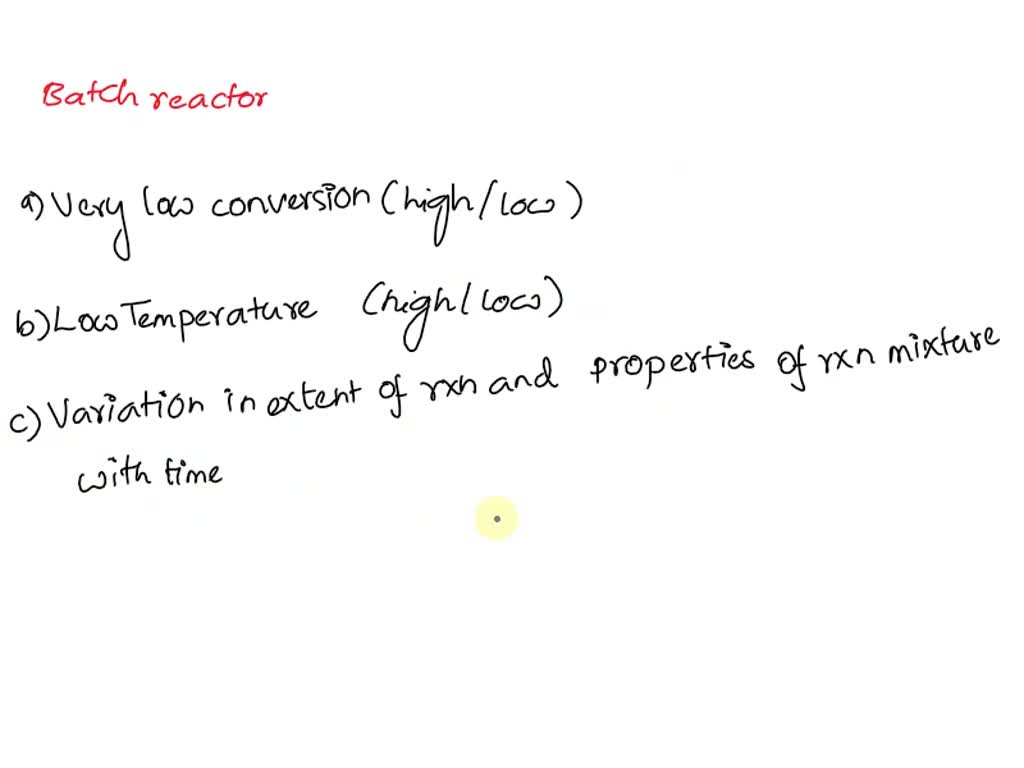 Batch reactor
a) Very low conversion (high/low)
b) Low Temperature (high/low)
c) Variation in extent of rxn and properties of rxn mixture
with time